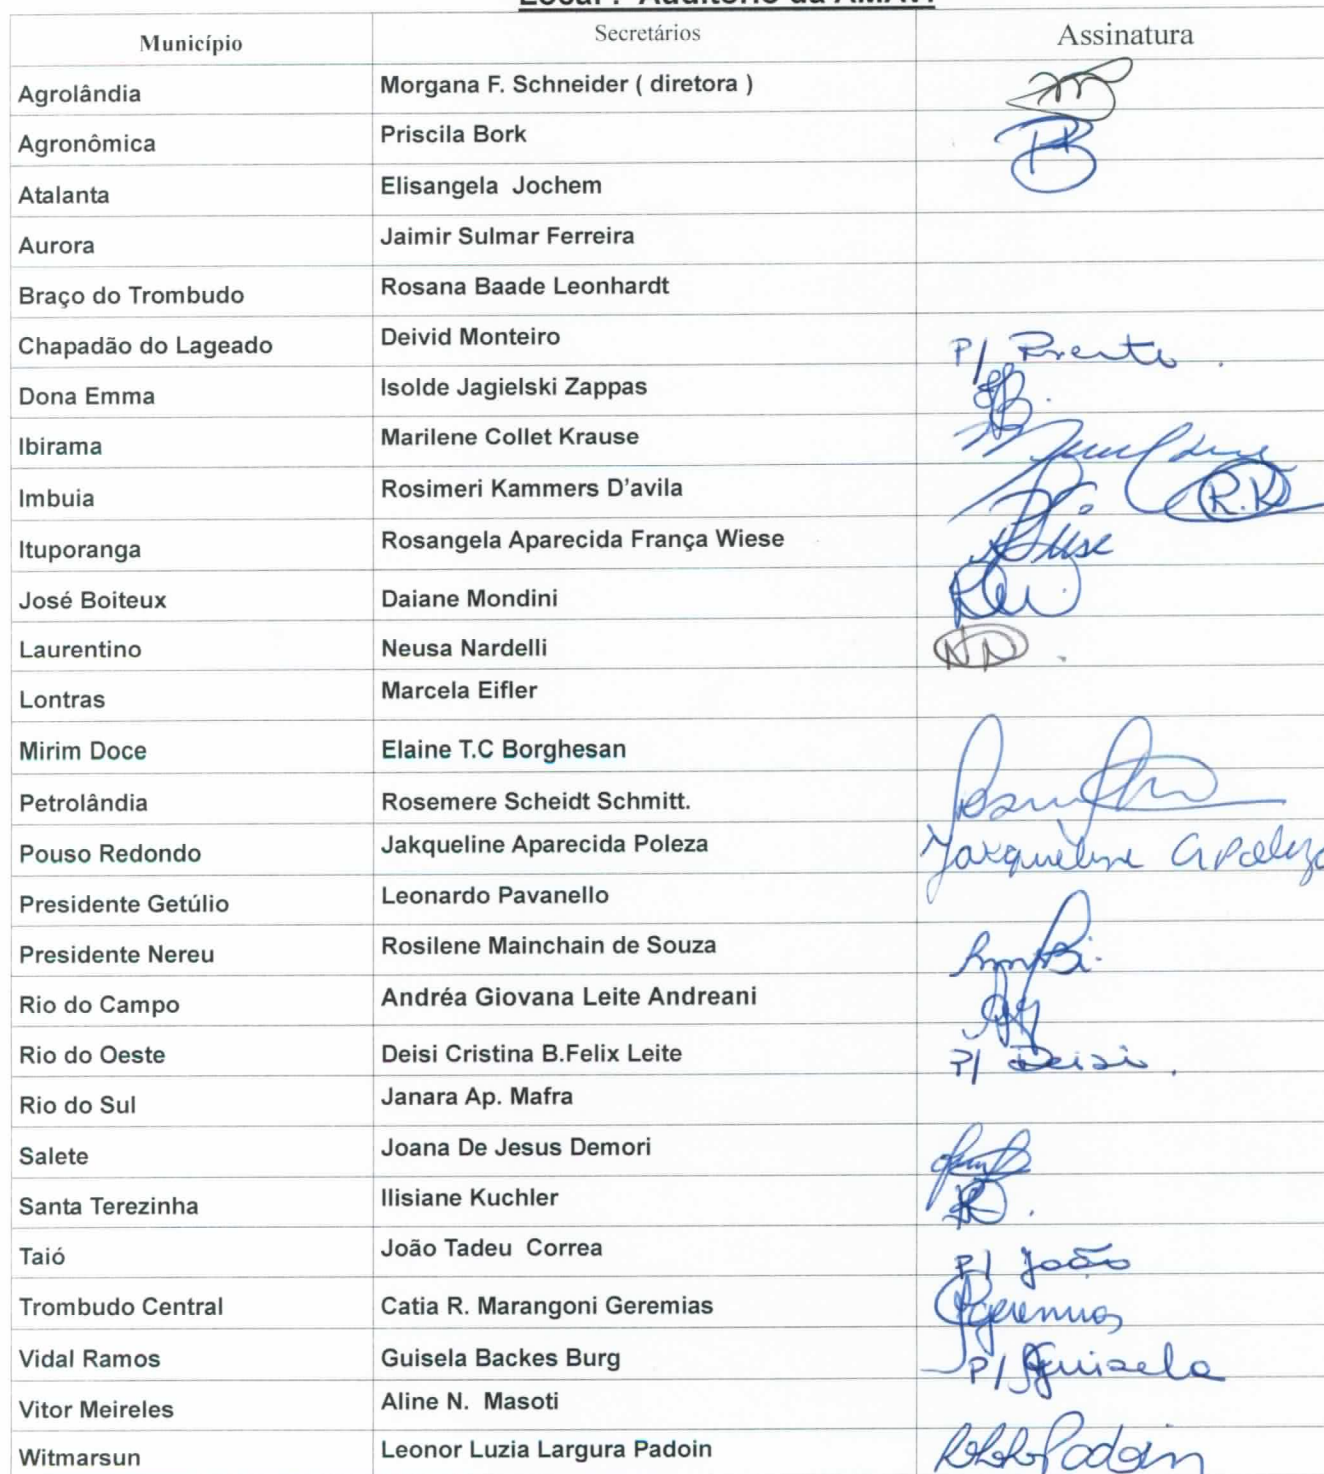 Local : Auditório da AMAVI
Município Secretários Assinatura
Agrolândia Morgana F. Schneider ( diretora )
Agronômica Priscila Bork
Atalanta Elisangela Jochem
Aurora Jaimir Sulmar Ferreira
Braço do Trombudo Rosana Baade Leonhardt
Chapadão do Lageado Deivid Monteiro P/
Dona Emma Isolde Jagielski Zappas
Ibirama Marilene Collet Krause
Imbuia Rosimeri Kammers D'avila R.K
Ituporanga Rosangela Aparecida França Wiese
José Boiteux Daiane Mondini
Laurentino Neusa Nardelli
Lontras Marcela Eifler
Mirim Doce Elaine T.C Borghesan
Petrolândia Rosemere Scheidt Schmitt.
Pouso Redondo Jakqueline Aparecida Poleza
Presidente Getúlio Leonardo Pavanello
Presidente Nereu Rosilene Mainchain de Souza
Rio do Campo Andréa Giovana Leite Andreani
Rio do Oeste Deisi Cristina B.Felix Leite P/ Deisi.
Rio do Sul Janara Ap. Mafra
Salete Joana De Jesus Demori
Santa Terezinha Ilisiane Kuchler
Taió João Tadeu Correa P/ João
Trombudo Central Catia R. Marangoni Geremias Geremias
Vidal Ramos Guisela Backes Burg P/ Guisela
Vitor Meireles Aline N. Masoti
Witmarsun Leonor Luzia Largura Padoin Padoin